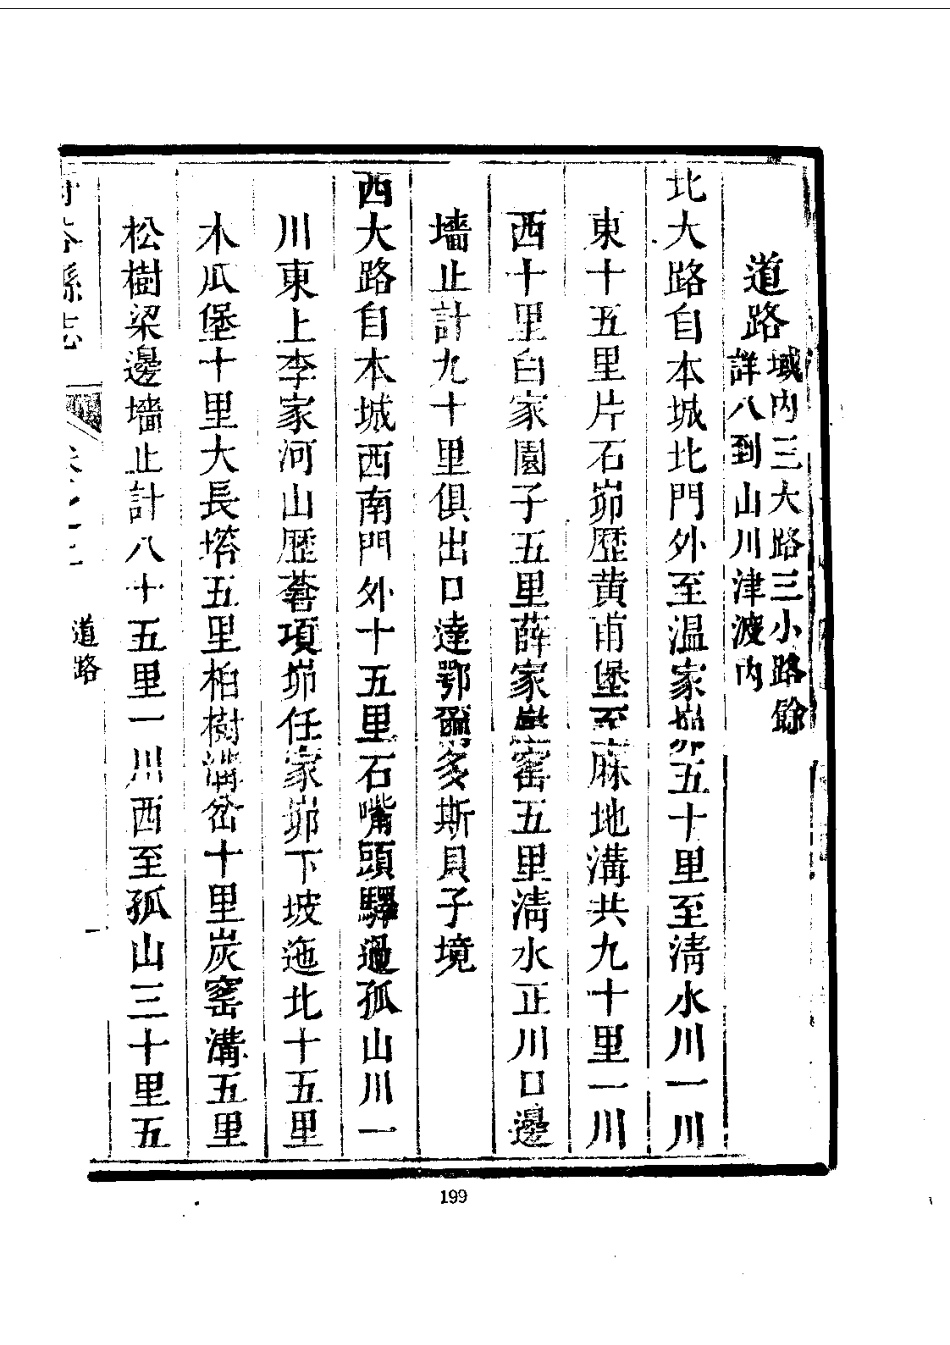 道路域內三大路三小路餘詳八到山川津渡內
北大路自本城北門外至温家峁五十里至清水川一川
東十五里片石峁歷黄甫堡至麻地溝共九十里一川
西十里白家園子五里薛家峁窰五里清水正川口邊
墻止計九十里俱出口達鄂爾多斯貝子境
西大路自本城西南門外十五里石嘴頭驛過孤山川一
川東上李家河山歷菴項峁任家峁下坡迤北十五里
木瓜堡十里大長塔五里柏樹溝岔十里炭窰溝五里
松樹梁邊墻止計八十五里一川西至孤山三十里五
府谷縣志
道路
199